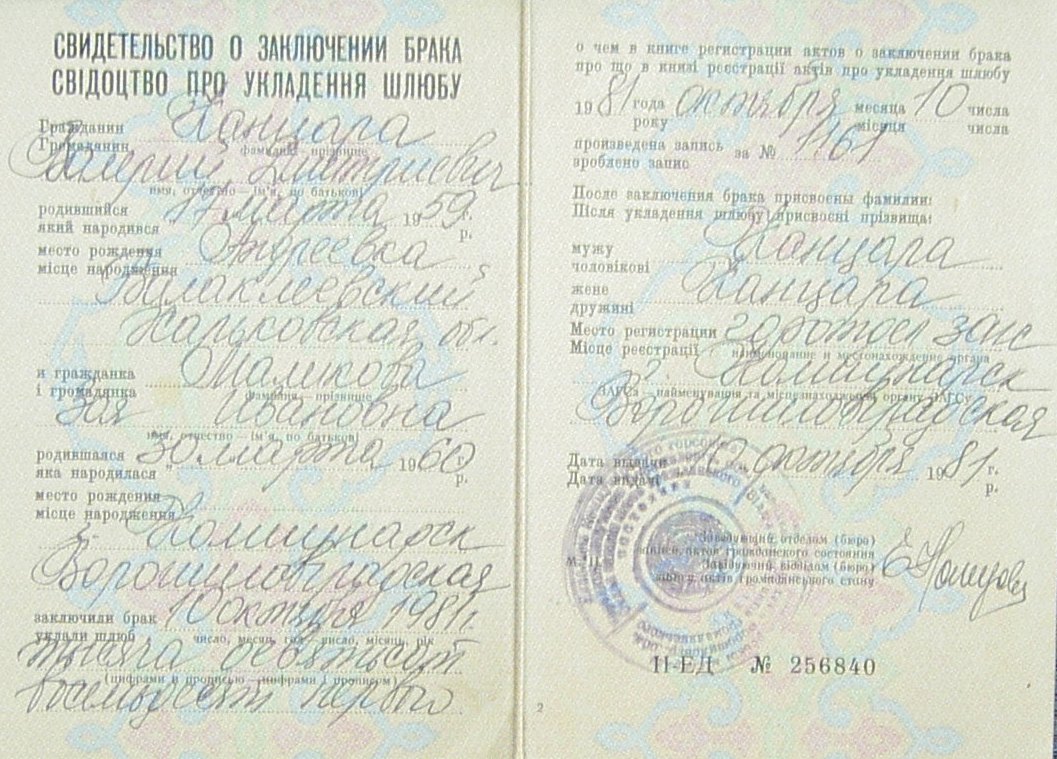 СВИДЕТЕЛЬСТВО О ЗАКЛЮЧЕНИИ БРАКА
СВІДОЦТВО ПРО УКЛАДЕННЯ ШЛЮБУ
Гражданин Канцара
Громадянин
фамилия — прізвище
Валерий Дмитриевич
имя, отчество — ім'я, по батькові
родившийся "17 марта 1959 г.
який народився р.
место рождения Андреевка
місце народження
Балаклеевский
Харьковская обл.
и гражданка Маликова
і громадянка
фамилия — прізвище
Зоя Ивановна
имя, отчество — ім'я, по батькові
родившаяся 30 марта 1960 г.
яка народилася " р.
место рождения
місце народження
г. Коммунарск
Ворошиловградская
заключили брак 10 октября 1981 г.
уклали шлюб число, месяц, год — число, місяць, рік
тысяча девятьсот
(цифрами и прописью — цифрами і прописом)
восемьдесят первого
о чем в книге регистрации актов о заключении брака
про що в книзі реєстрації актів про укладення шлюбу
1981 года октября месяца 10 числа
року місяця числа
произведена запись за № 1161
зроблено запис
После заключения брака присвоены фамилии:
Після укладення шлюбу присвоєні прізвища:
мужу Канцара
чоловікові
жене Канцара
дружині
Место регистрации
Місце реєстрації
наименование и местонахождение органа
г. Коммунарск
ЗАГСа — найменування та місцезнаходження органу ЗАГСу
Ворошиловградская
Дата выдачи 10 октября 1981 г.
Дата видачі р.
Заведующий отделом (бюро)
записи актов гражданского состояния
М. П. Завідуючий відділом (бюро)
запису актів громадянського стану
II-ЕД № 256840
2